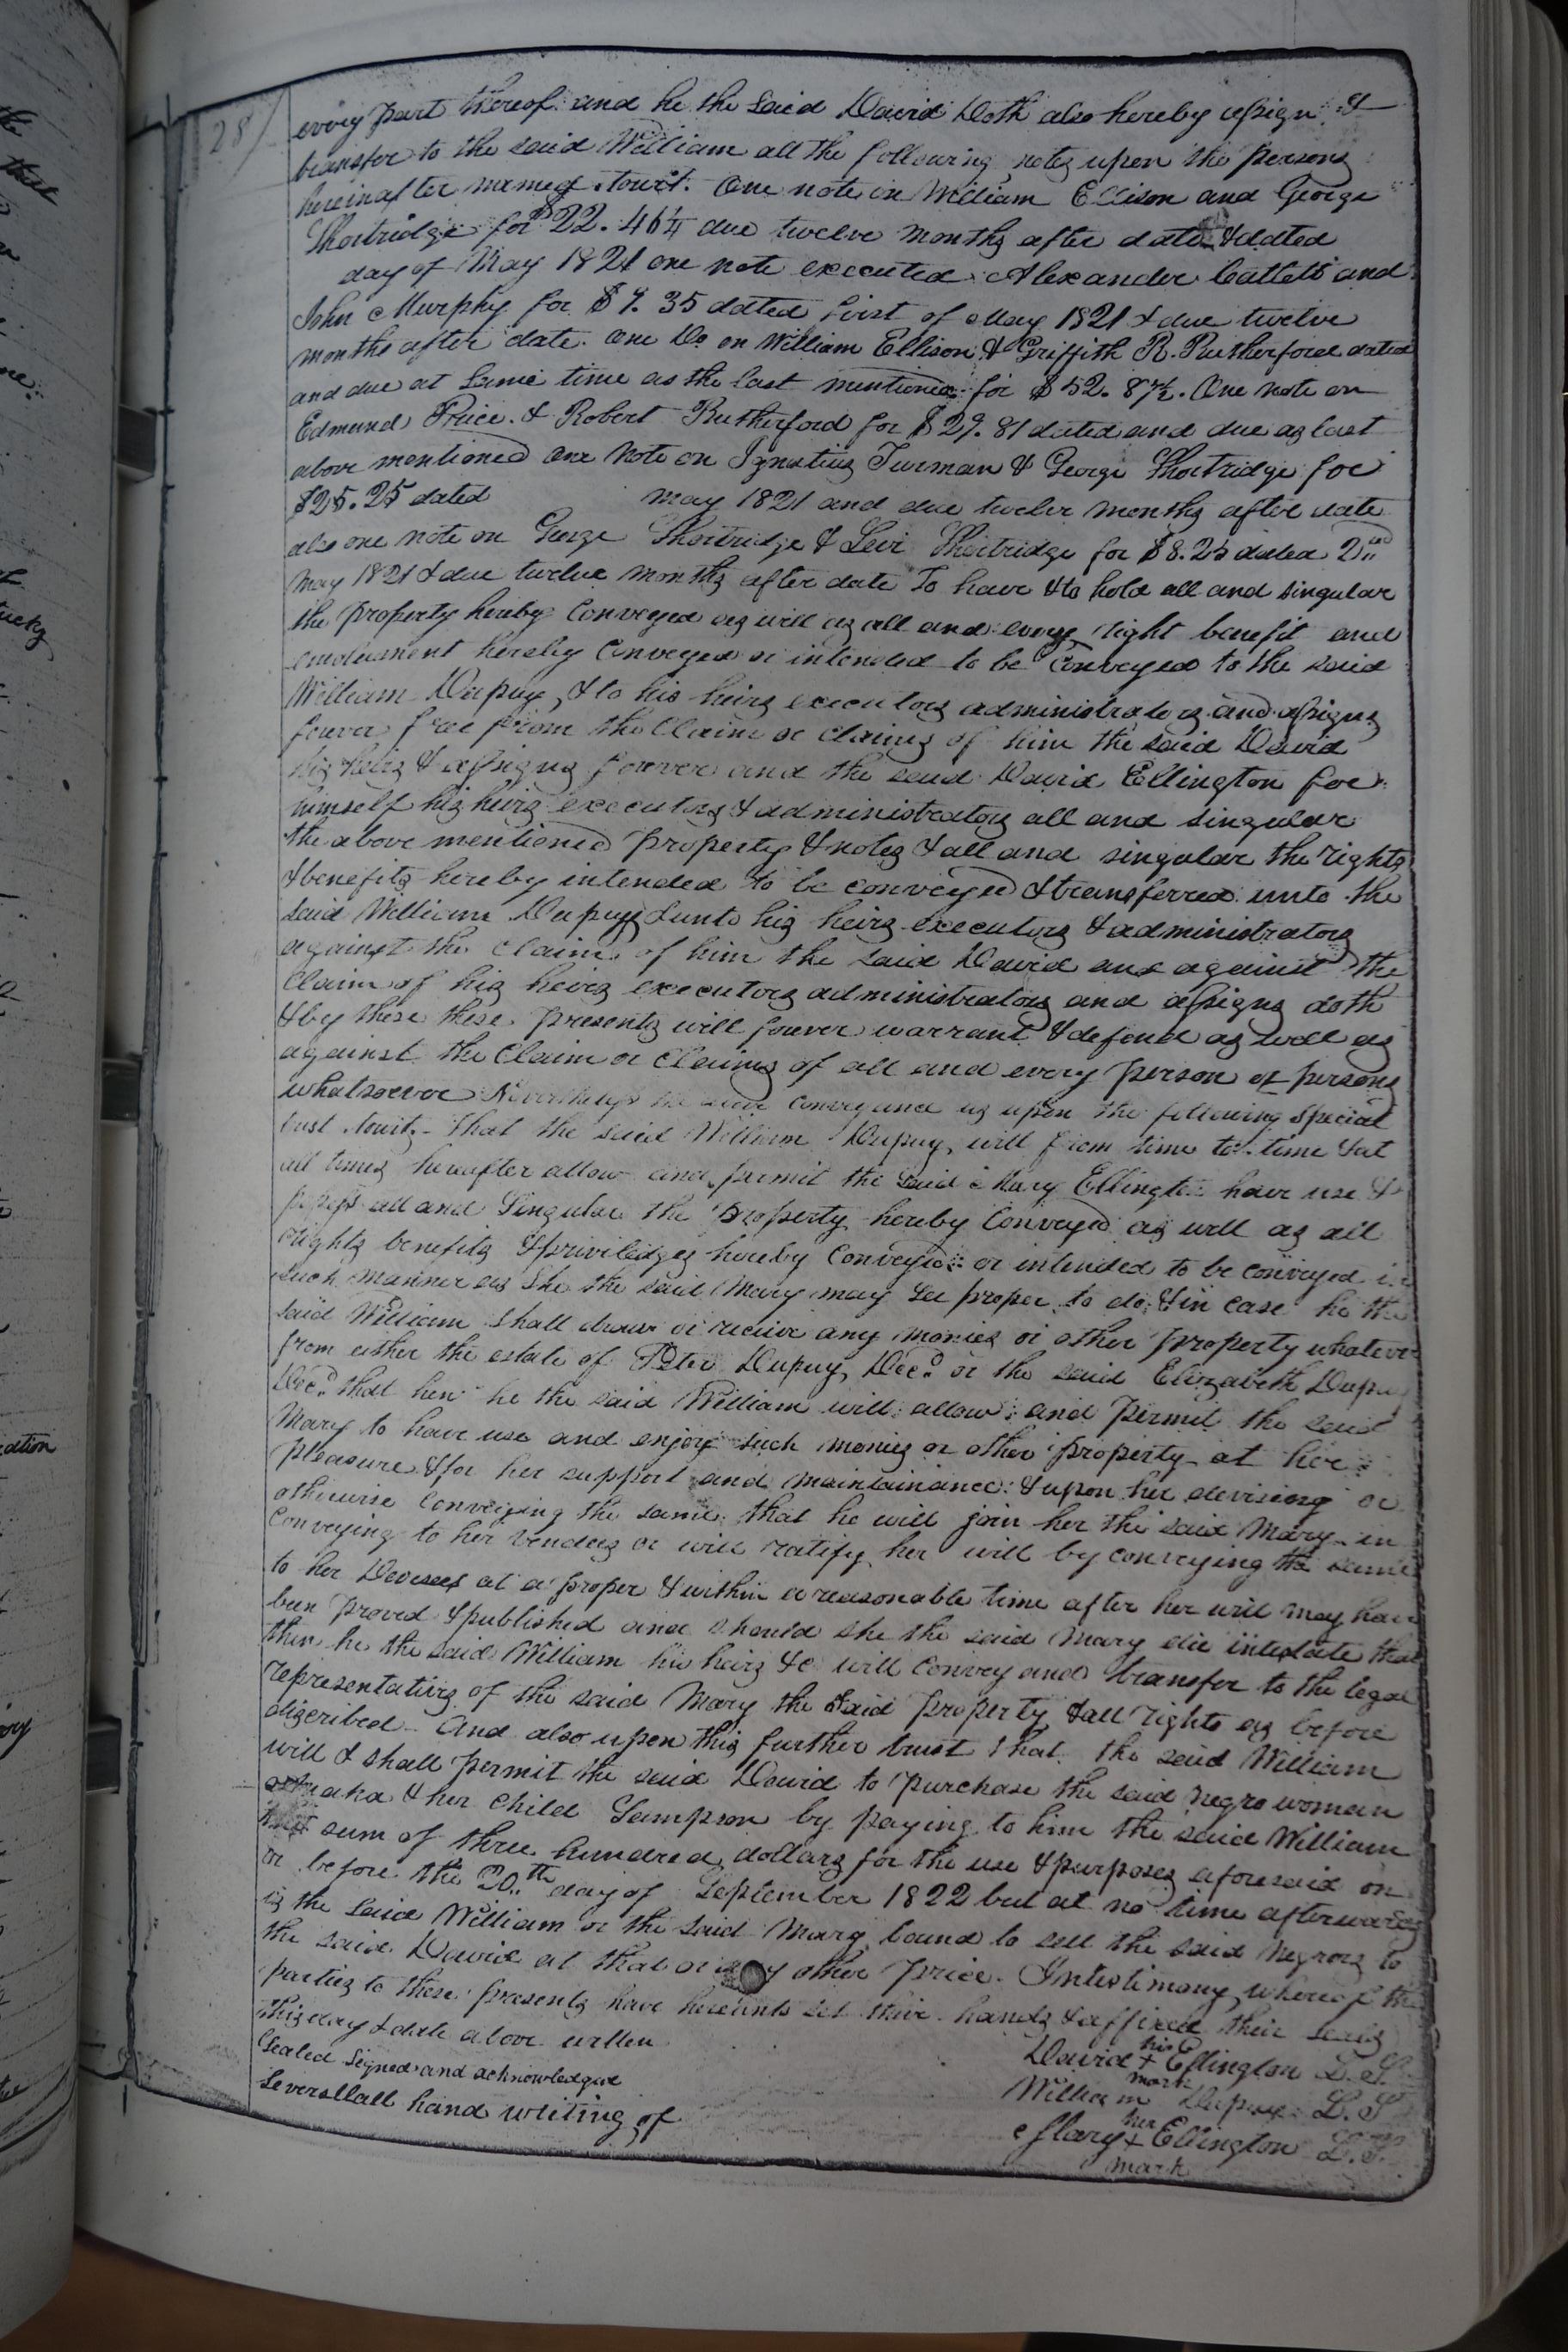 28
every part thereof and he the said David Doth also hereby assign &
transfer to the said William all the following notes upon the persons
hereinafter named towit. One note on William Ellison and George
Shortridge for $22.46¼ due twelve months after date & dated
day of May 1821 one note executed Alexander Catlett and
John Murphy for $9.35 dated first of May 1821 & due twelve
months after date. One Do on William Ellison & Griffith R. Rutherford dated
and due at same time as the last mentioned for $52.87½. One note on
Edmund Price & Robert Rutherford for $29.81 dated and due as last
above mentioned one note on Ignatius Turman & George Shortridge for
$25.25 dated May 1821 and due twelve months after date
also one note on George Shortridge & Levi Shortridge for $8.25 dated 2nd
May 1821 & due twelve months after date To have & to hold all and singular
the property hereby Conveyed as will as all and every right benefit and
emolument hereby Conveyed or intended to be Conveyed to the said
William Dupuy, & to his heirs executors administrators and assigns
forever free from the Claim or claims of him the said David
his heirs & assigns forever and the said David Ellington for
himself his heirs executors & administrators all and singular
the above mentioned property & notes & all and singular the rights
& benefits hereby intended to be conveyed & transferred unto the
said William Dupuy & unto his heirs executors & administrators
against the claim of him the said David and against the
Claim of his heirs executors administrators and assigns doth
& by these these presents will forever warrant & defend as well as
against the Claim or Claims of all and every person or persons
whatsoever Nevertheless the above conveyance is upon the following special
trust towit. That the said William Dupuy, will from time to time & at
all times hereafter allow and permit the said Mary Ellington have use &
possess all and Singular the property hereby Conveyed as will as all
rights benefits & priviledges hereby Conveyed or intended to be conveyed in
such manner as She the said Mary may see proper to do, & in case he the
said William shall draw or receive any monies or other property whatever
from either the estate of Peter Dupuy, Decd or the said Elizabeth Dupuy
Decd that hen he the said William will allow and permit the said
Mary to have use and enjoy such monies or other property at her
pleasure & for her support and maintainance & upon her devising or
otherwise Conveying the same that he will join her the said Mary in
Conveying to her vendees or will ratify her will by conveying the same
to her Devisees at a proper & within a reasonable time after her will may have
been proved & published and should she the said Mary die intestate that
then he the said William his heirs &c will Convey and transfer to the legal
representatives of the said Mary the said property & all rights as before
discribed And also upon this further trust that the said William
will & shall permit the said David to purchase the said negro woman
& her Child Sampson by paying to him the said William
sum of three hundred dollars for the use & purposes aforesaid on
or before the 20th day of September 1822 but at no time afterwards
is the said William or the said Mary bound to sell the said Negroes to
the said David at that or any other price. Intestimony whereof the
parties to these presents have hereunto set their hands & affixed their seals
this day & date above written
Sealed Signed and acknowledged
Severallall hand writing of
his
David + Ellington L.S.
mark
William Dupuy L.S
her
Mary + Ellington L.S.
mark